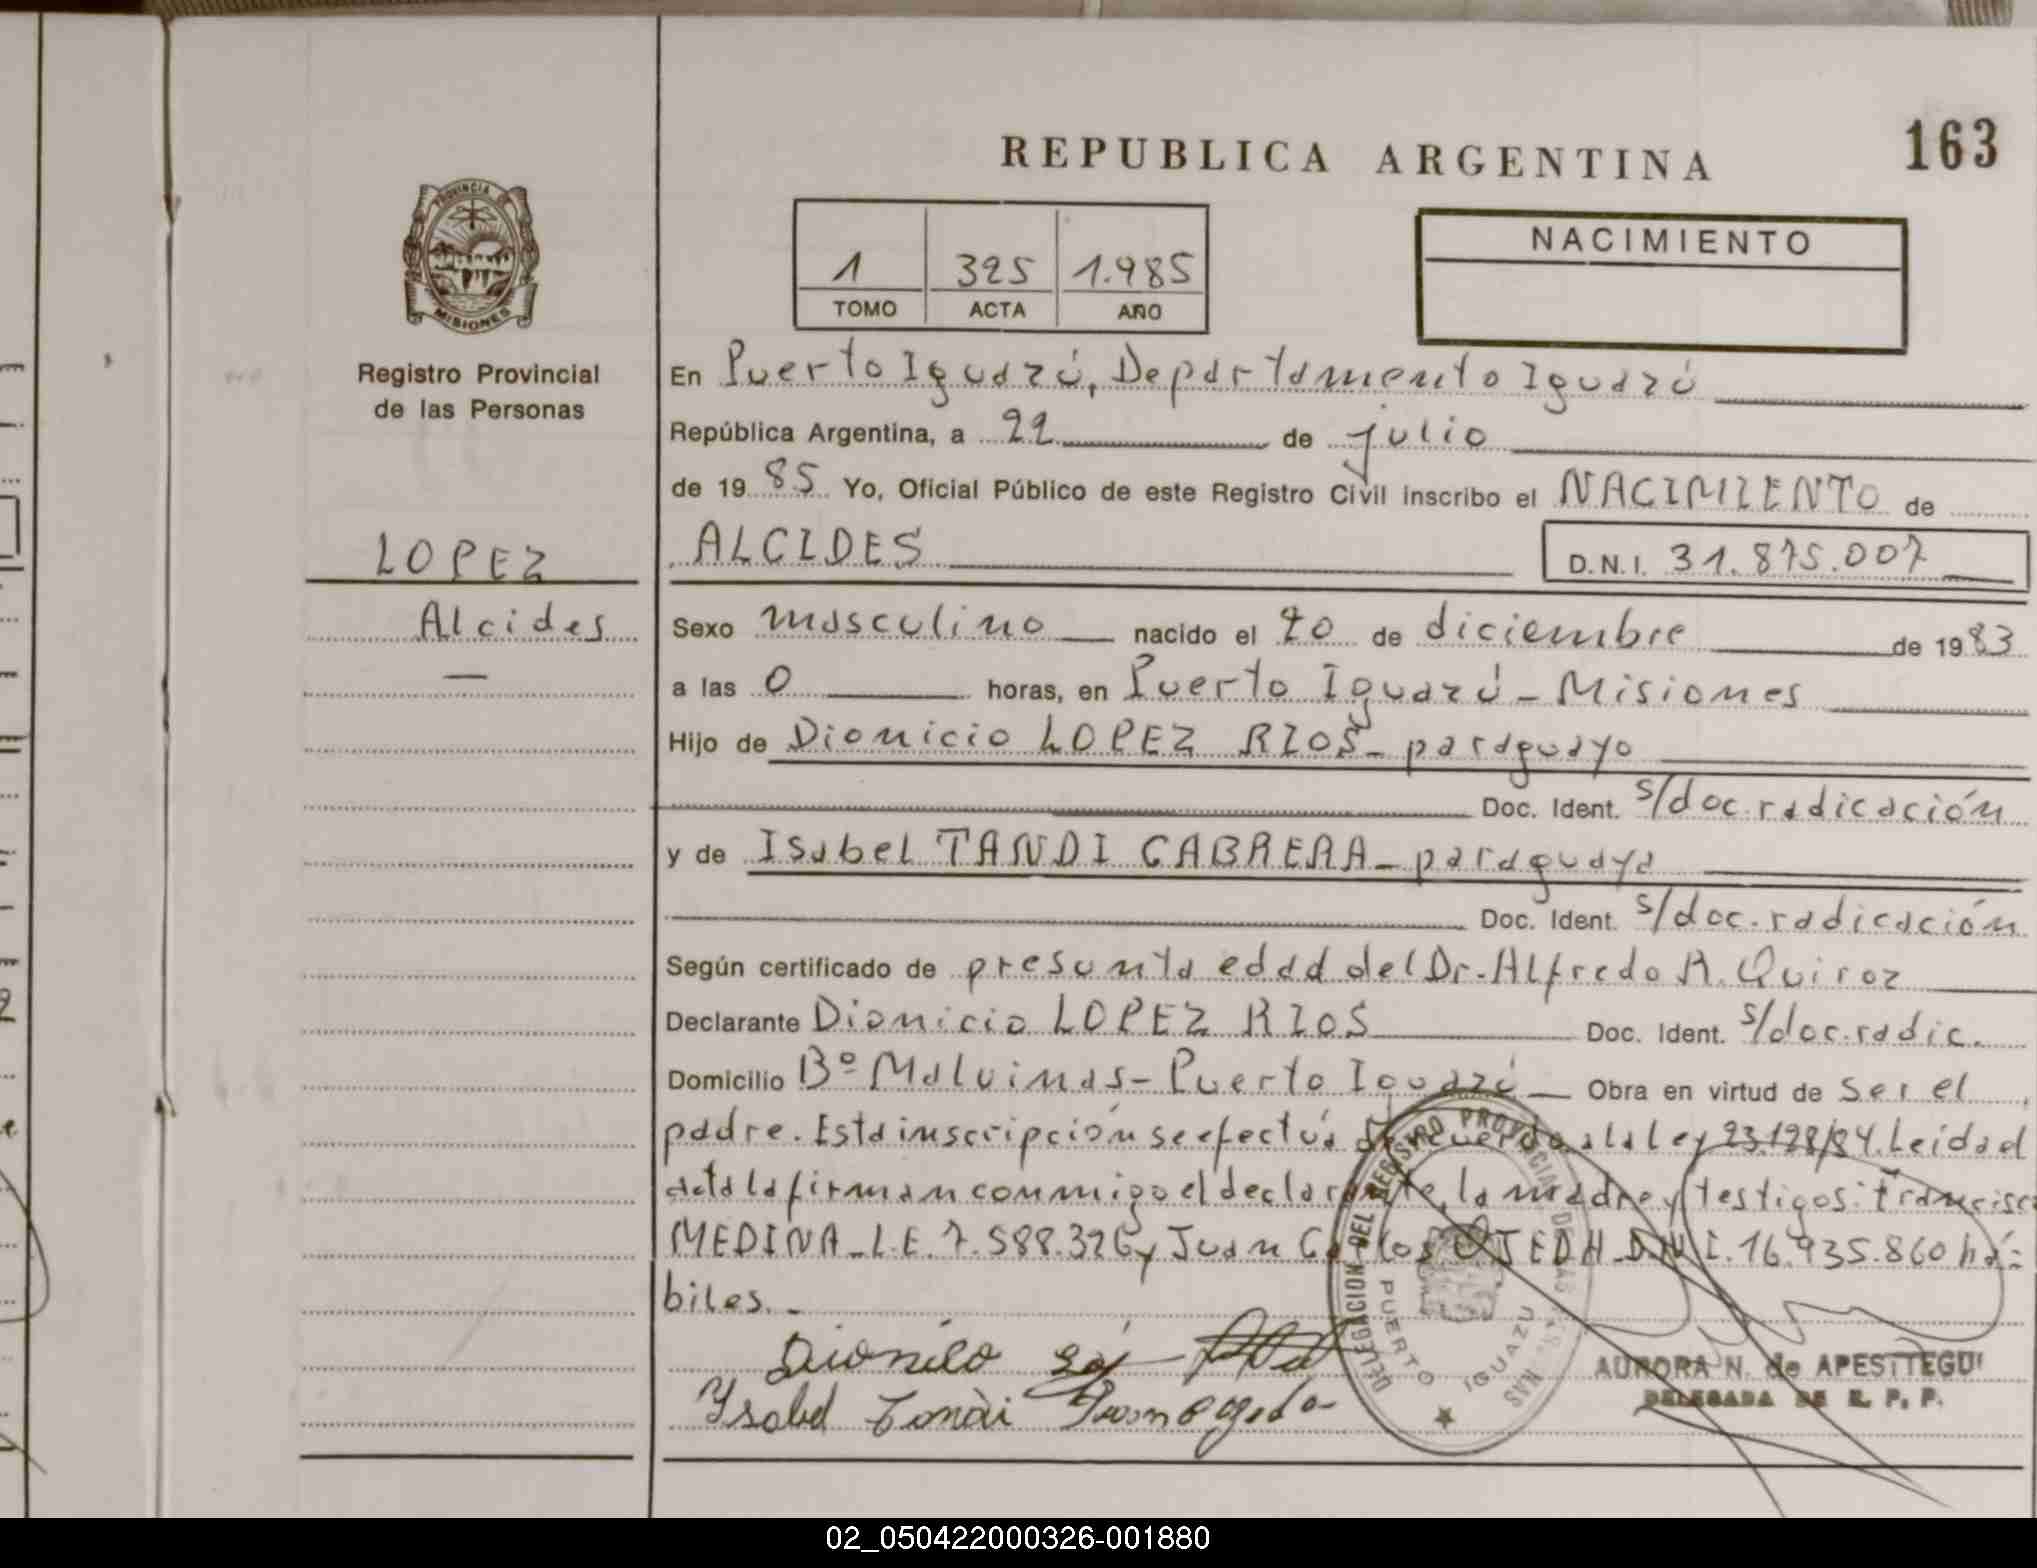 REPUBLICA ARGENTINA
163
PROVINCIA DE
MISIONES
Registro Provincial
de las Personas
1 325 1.985
TOMO ACTA AÑO
NACIMIENTO
En Puerto Iguazú, Departamento Iguazú
República Argentina, a 22 de julio
de 19 85 Yo, Oficial Público de este Registro Civil inscribo el NACIMIENTO de
LOPEZ
ALCIDES
D.N.I. 31.875.007
Alcides
Sexo masculino nacido el 20 de diciembre de 19 83
a las 0 horas, en Puerto Iguazú - Misiones
Hijo de Dionicio LOPEZ RIOS - paraguayo
Doc. Ident. s/doc. radicación
y de Isabel TANDI CABRERA - paraguaya
Doc. Ident. s/doc. radicación
Según certificado de presunta edad del Dr. Alfredo R. Quiroz
Declarante Dionicio LOPEZ RIOS Doc. Ident. s/doc. radic.
Domicilio Bº Malvinas - Puerto Iguazú Obra en virtud de ser el
padre. Esta inscripción se efectúa de acuerdo a la ley 23.128/84. Leida el
acta la firman conmigo el declarante, la madre y testigos: Francisco
MEDINA - L.E. 7.588.326 y Juan Carlos OJEDA D.N.I. 16.935.860 há-
biles. -
Dionicio
Ysabel
DELEGACION DEL REGISTRO PROVINCIAL DE LAS PERSONAS
PUERTO IGUAZU
AURORA N. de APESTTEGUI
DELEGADA DE R. P. P.
02_050422000326-001880